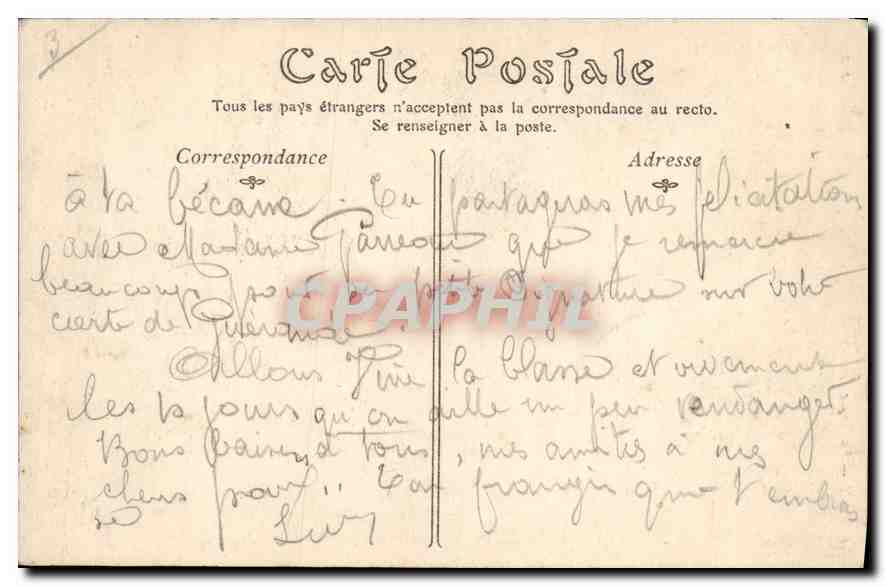 3
Carte Postale
Tous les pays étrangers n'acceptent pas la correspondance au recto.
Se renseigner à la poste.
Correspondance
Adresse
à ta bécane. Tu partageras mes félicitations
avec Madame que je remercie
beaucoup pour sa petite signature sur votre
carte de Guérande.
Allons Vive la classe et vivement
les 15 jours qu'on aille un peu vendanger.
Bons baisers à tous, mes amitiés à mes
chers Ton frangin qui t'embras
se
CPAPHIL